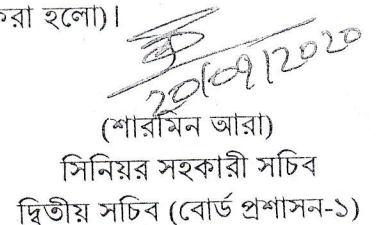 করা হলো)।
২০/০৭/২০২০
(শারমিন আরা)
সিনিয়র সহকারী সচিব
দ্বিতীয় সচিব (বোর্ড প্রশাসন-১)